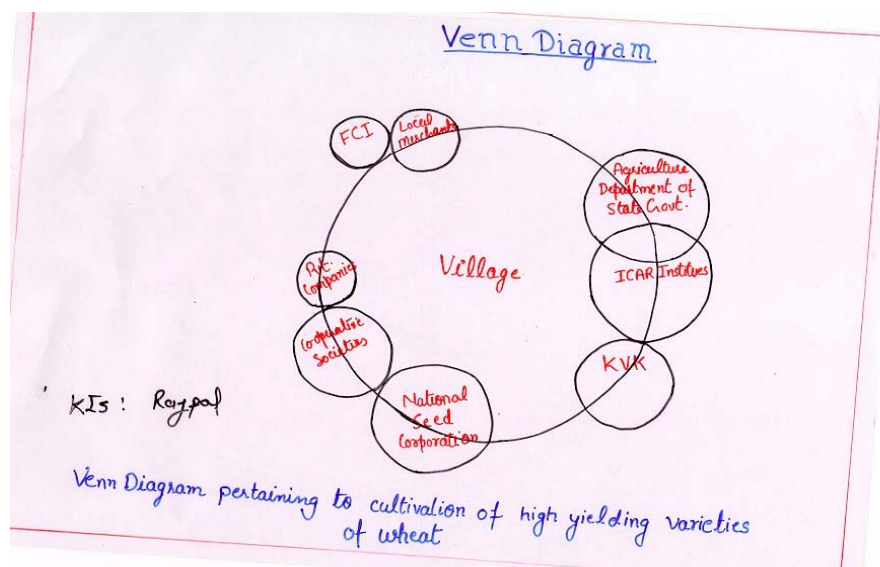 Venn Diagram
FCI
Local
Merchants
Agriculture
Department of
State Govt.
Pvt.
Companies
Village
ICAR Institutes
Cooperative
Societies
KVK
National
Seed
Corporation
KIs: Rajpal
Venn Diagram pertaining to cultivation of high yielding varieties
of wheat